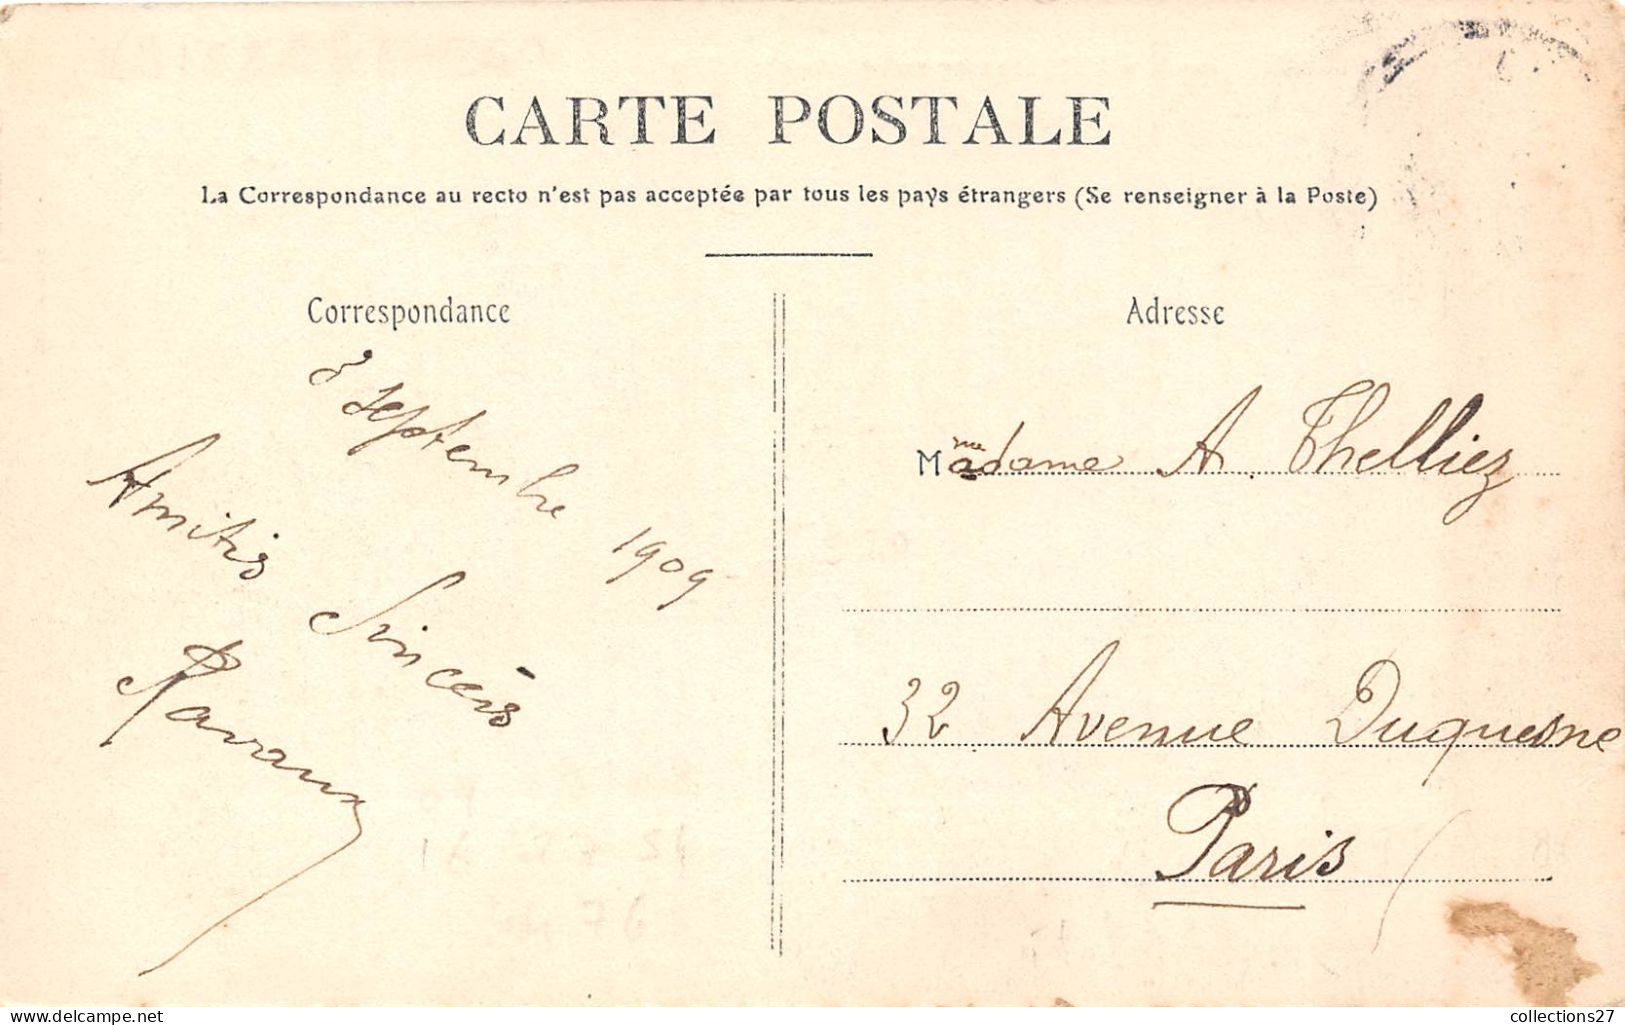 CARTE POSTALE
La Correspondance au recto n'est pas acceptée par tous les pays étrangers (Se renseigner à la Poste)
Correspondance
3 septembre 1909
Amitiés Sincères
Adresse
Madame A. Thelliez
32 Avenue Duquesne
Paris
collections27